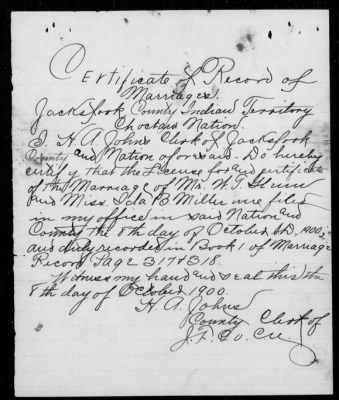 Certificate of Record of
Marriages.
Jacksfork County Indian Territory
Choctaw Nation.
I H. A. Johns Clerk of Jacksfork
County and Nation aforesaid. Do hereby
certify that the License for and certificate
of the Marriage of Mr. W. T.
and Miss. Ida B. Miller were filed
in my office in said Nation and
County the 8th day of October A.D. 1900,
and duly recorded in Book 1 of Marriage
Record Page 317 & 318.
Witness my hand and seal this the
8th day of October 1900.
H. A. Johns
County Clerk of
J. F. Co. C.N.